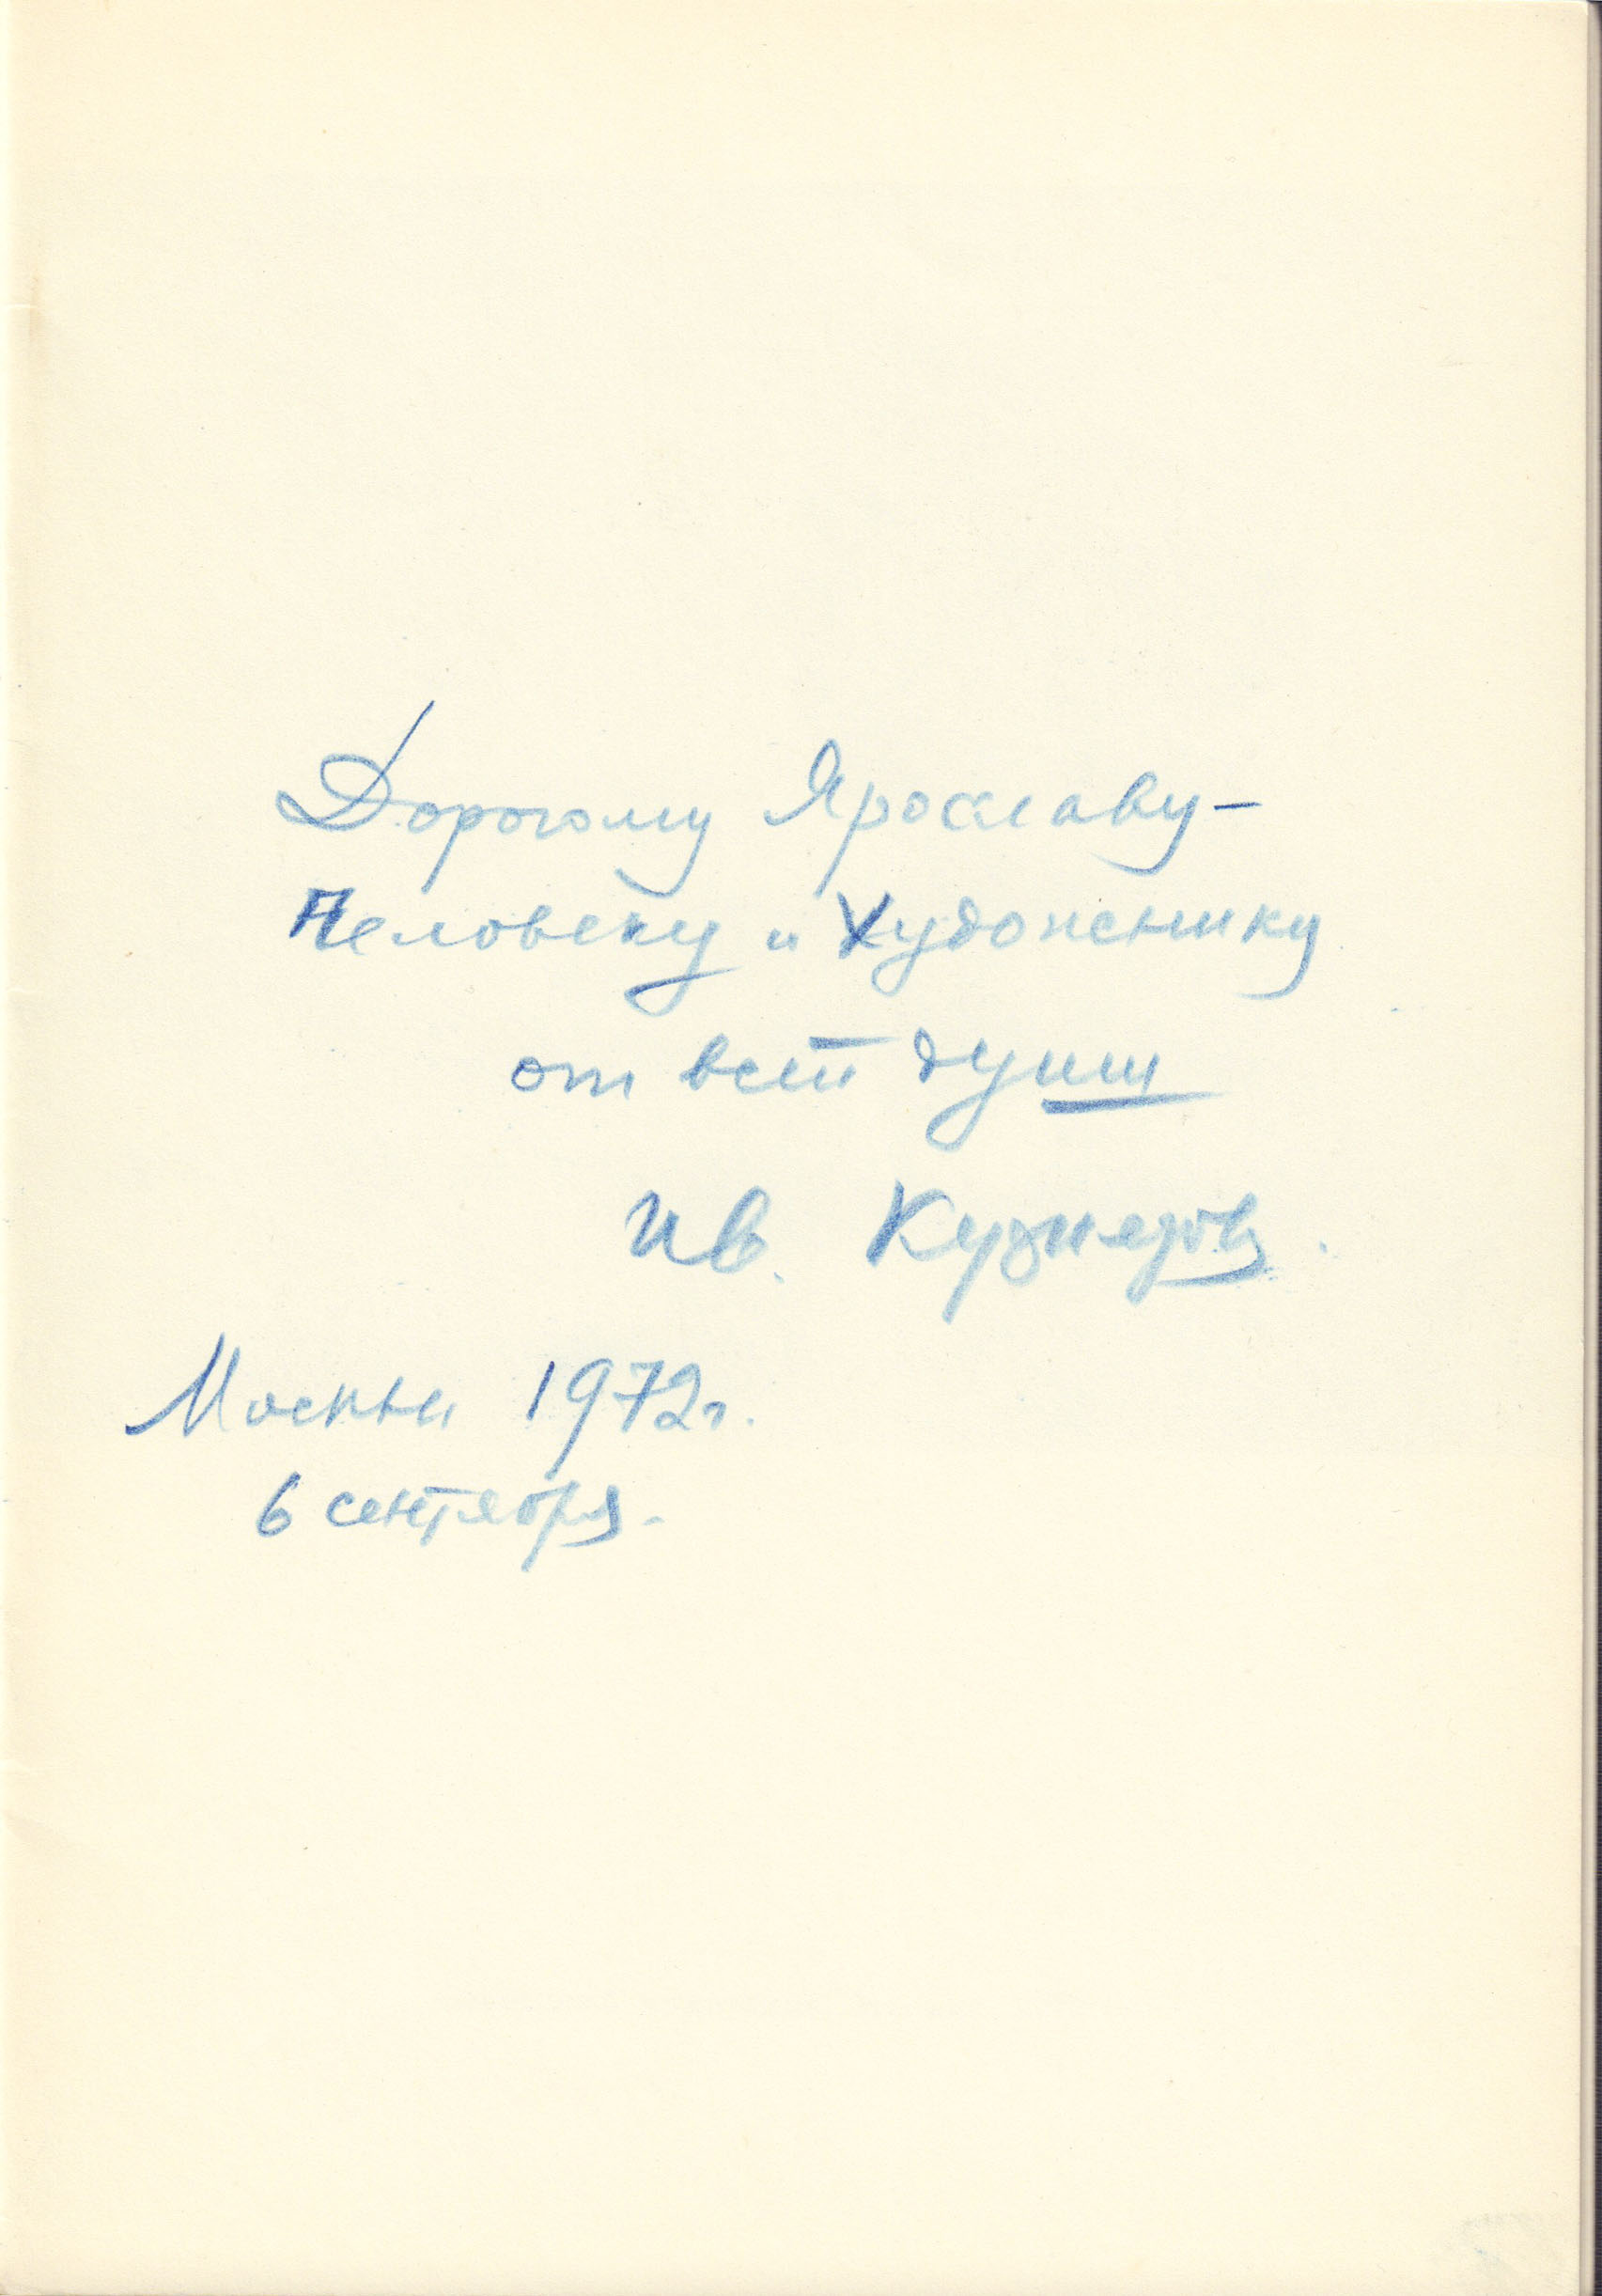 Дорогому Ярославу –
Человеку и Художнику
от всей души
Ив. Кузнецов.
Москва 1972г.
6 сентября.